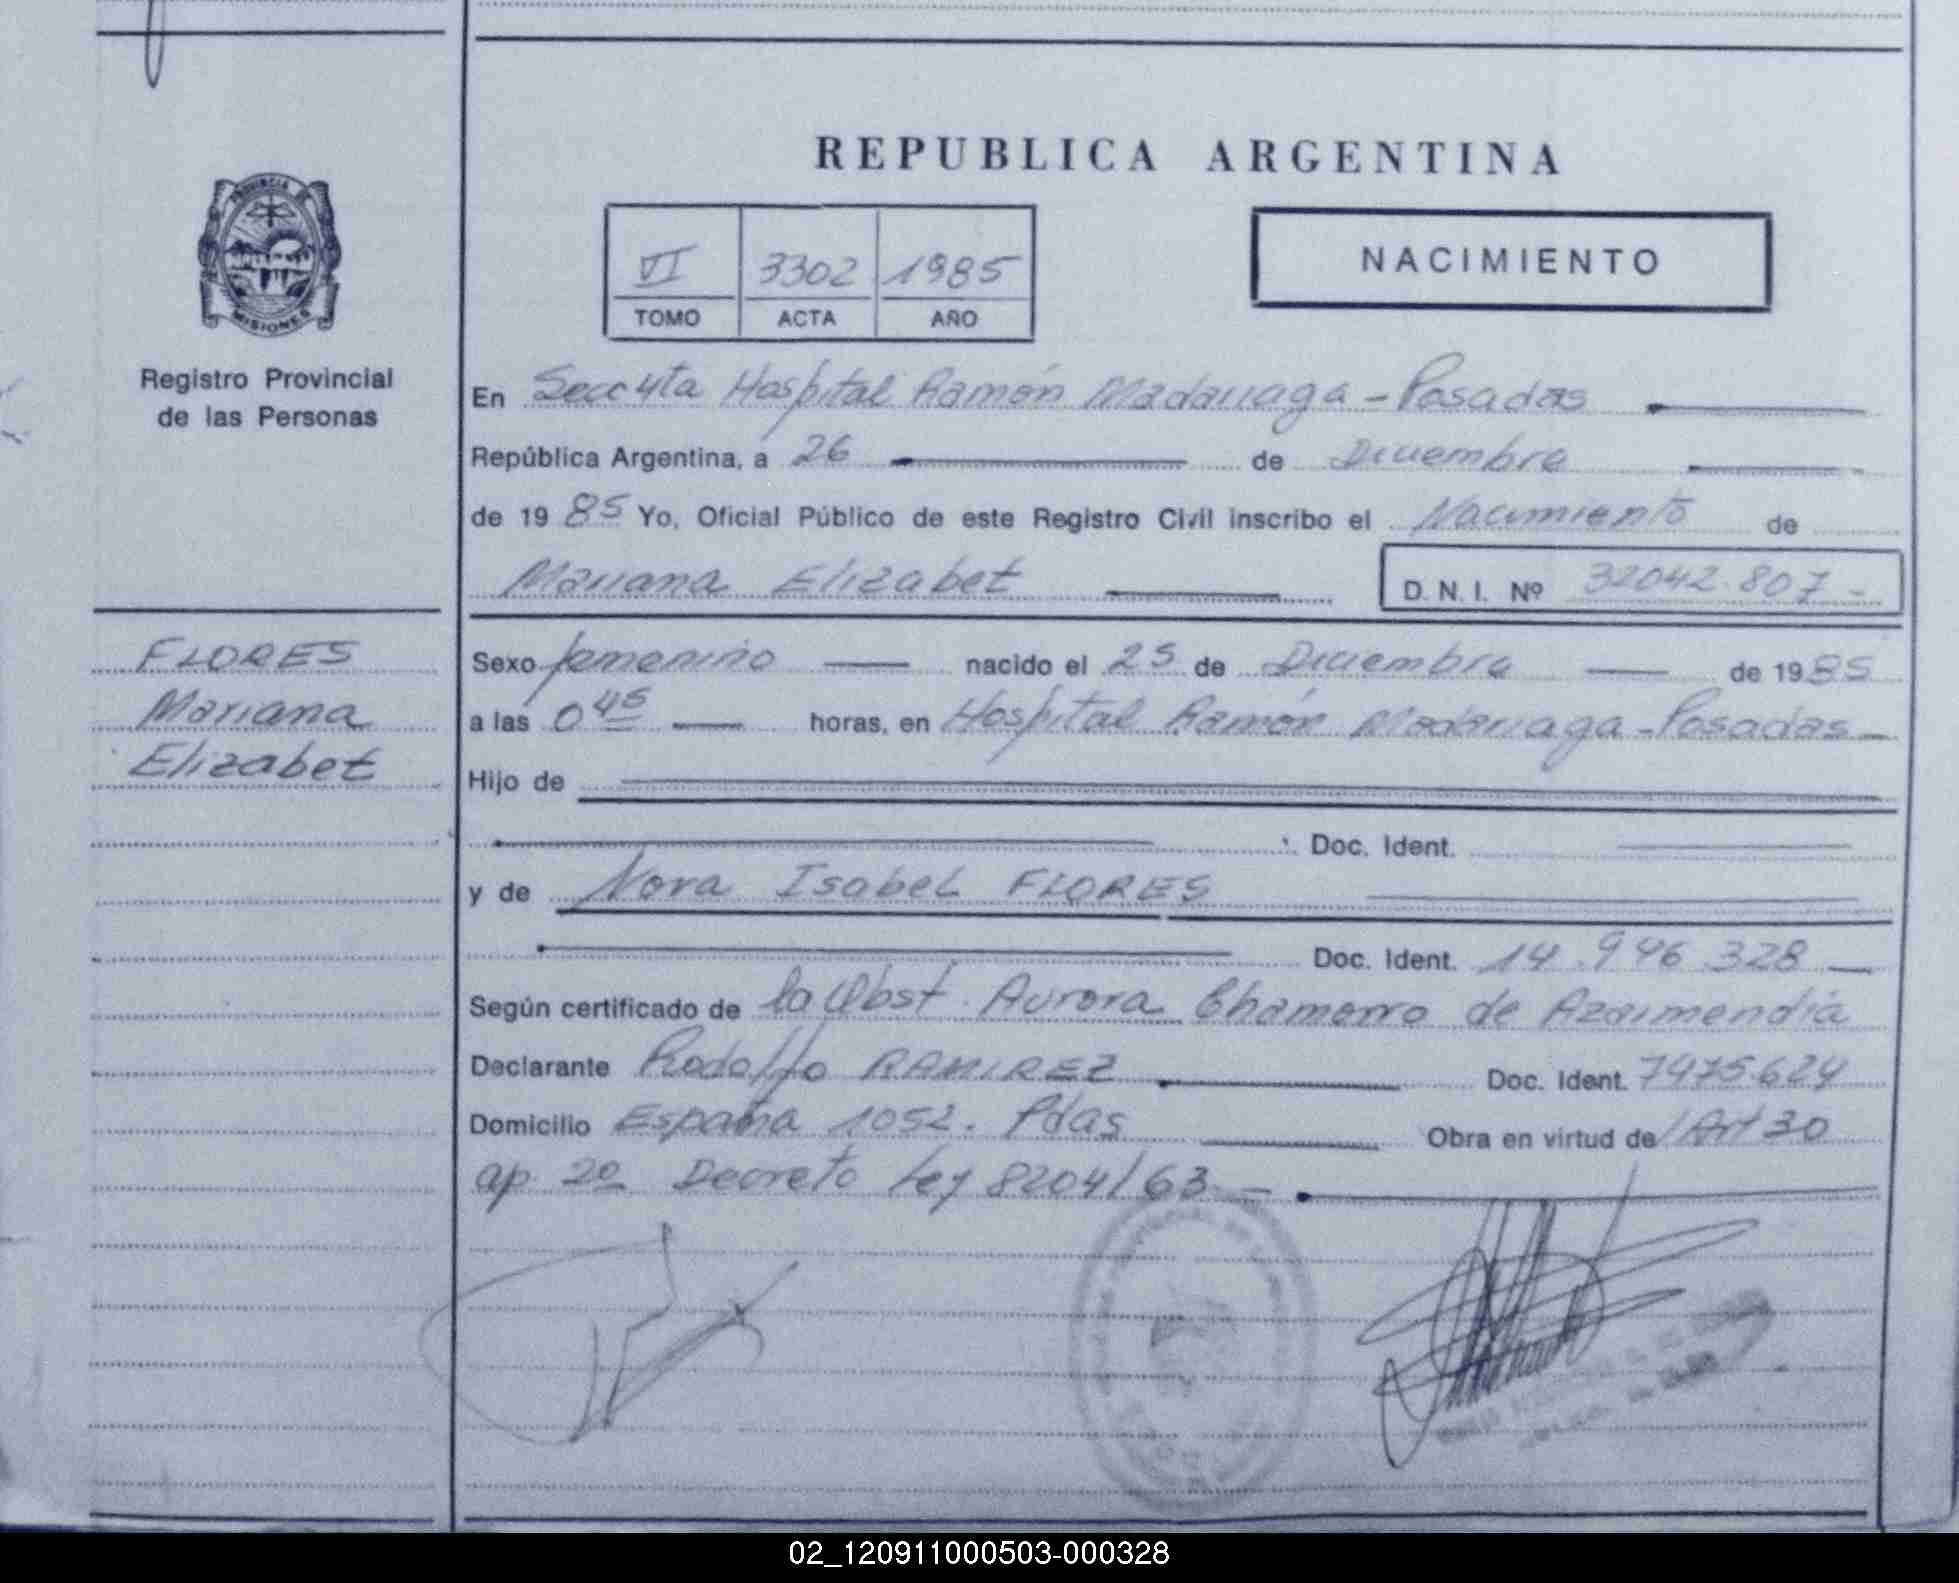 REPUBLICA ARGENTINA
PROVINCIA DE
MISIONES
Registro Provincial
de las Personas
VI 3302 1985
TOMO ACTA AÑO
NACIMIENTO
En Secc 4ta Hospital Ramón Madariaga - Posadas
República Argentina, a 26 de Diciembre
de 1985 Yo, Oficial Público de este Registro Civil inscribo el Nacimiento de
Mariana Elizabet D.N.I. Nº 32042.807-
FLORES
Mariana
Elizabet
Sexo femenino nacido el 25 de Diciembre de 1985
a las 0 45 horas, en Hospital Ramón Madariaga - Posadas -
Hijo de
Doc. Ident.
y de Nora Isabel FLORES
Doc. Ident. 14.946.328
Según certificado de la Obst. Aurora Chamorro de Azaimendia
Declarante Rodolfo RAMIREZ Doc. Ident. 7475624
Domicilio España 1052. Pdas Obra en virtud de/ Art 30
ap 2º Decreto Ley 8204/63 -
02_120911000503-000328